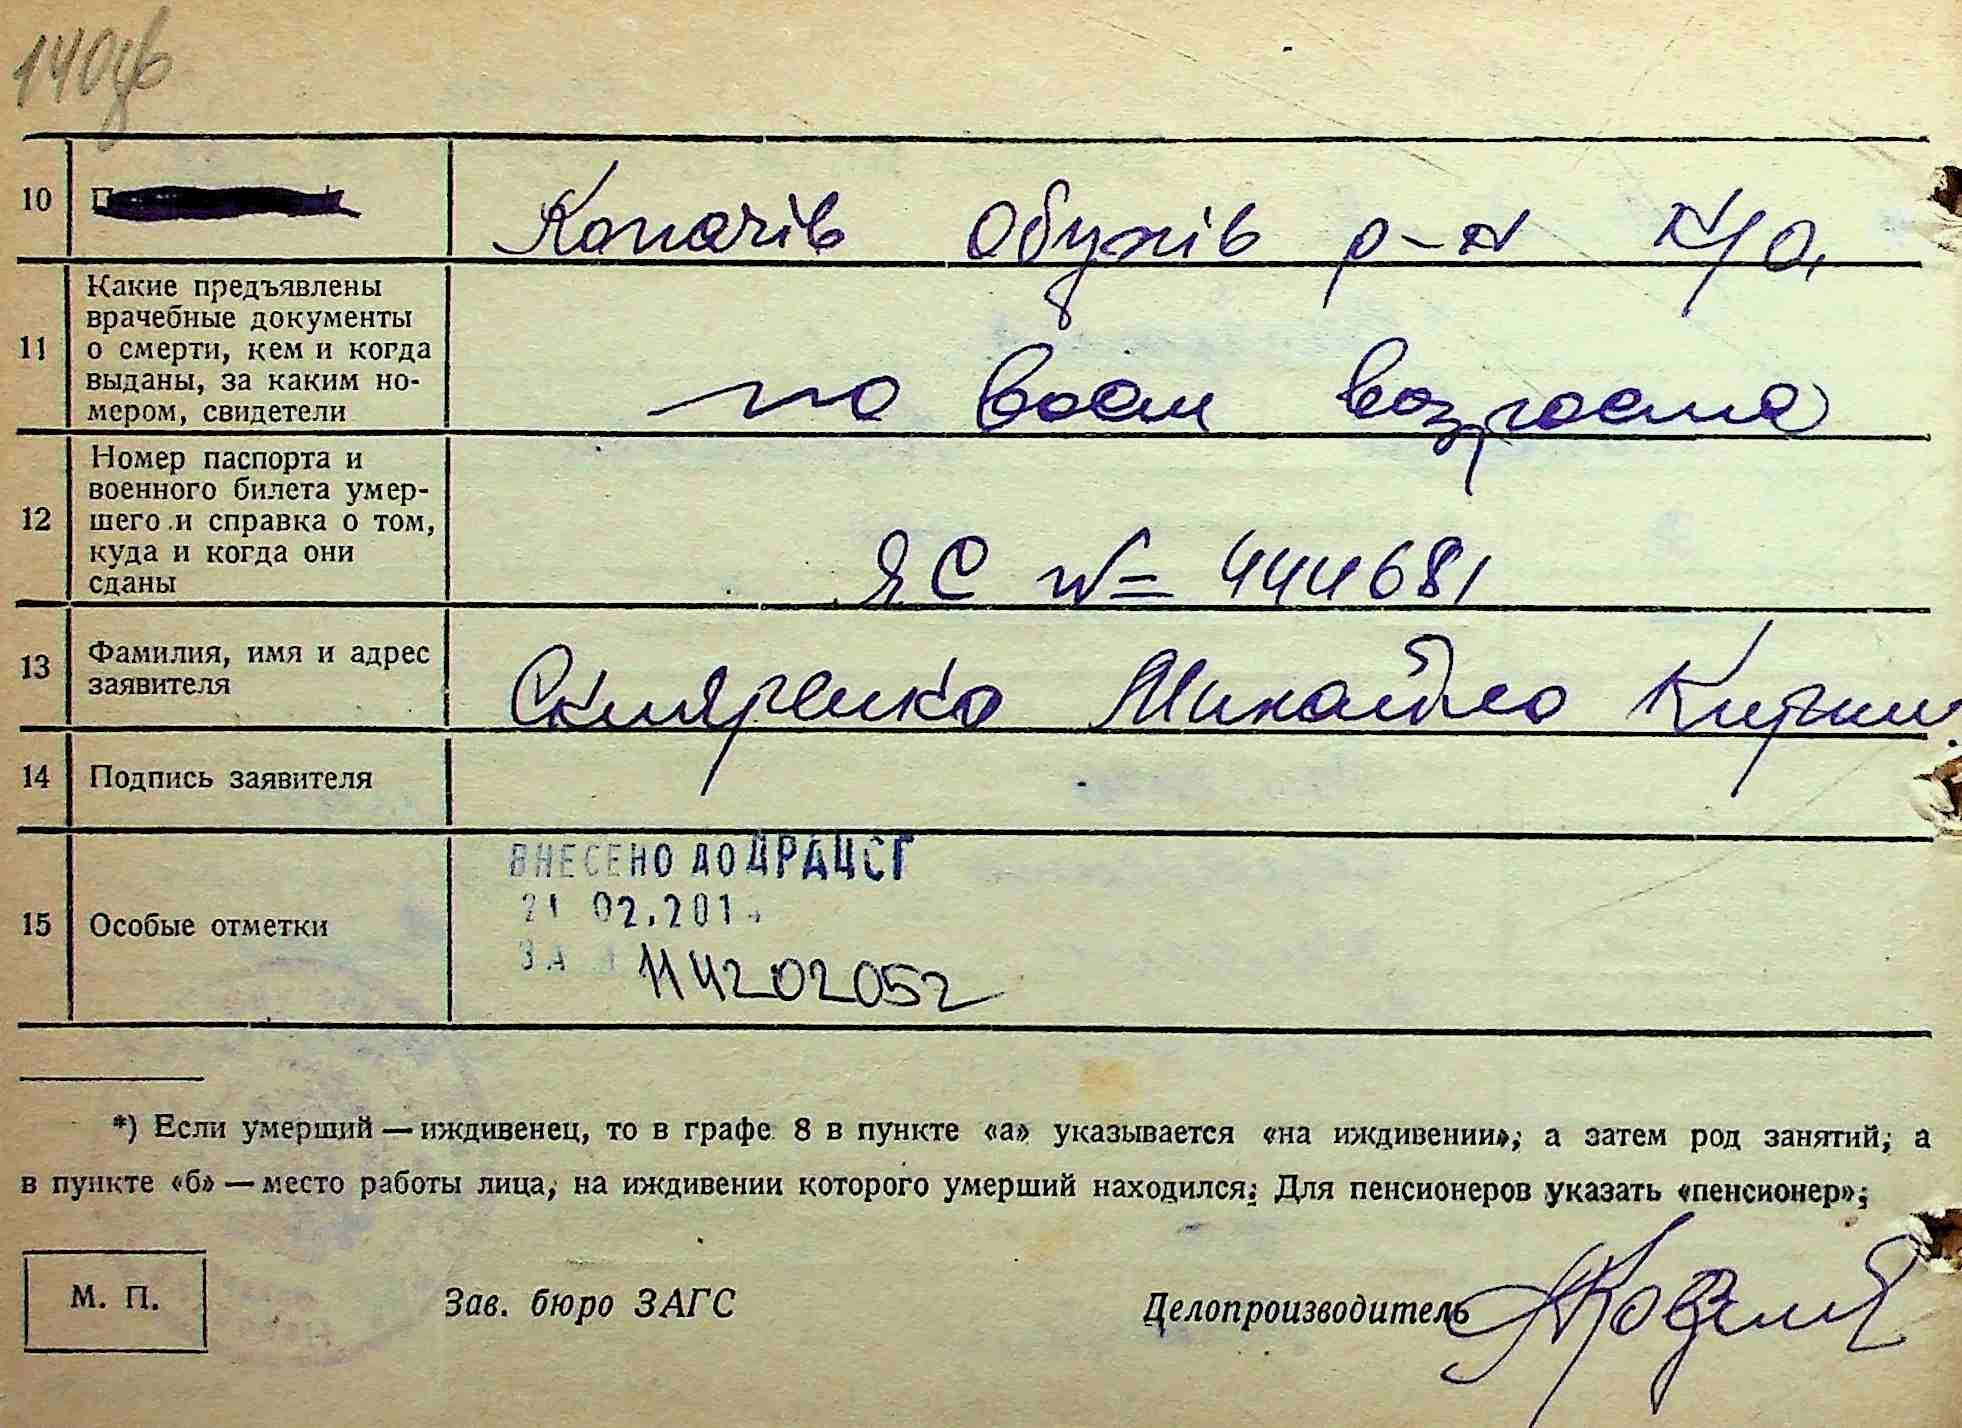 140
10
Копачів Обухів р-н К/о,
11 Какие предъявлены
врачебные документы
о смерти, кем и когда
выданы, за каким но-
мером, свидетели
по воем возроста
12 Номер паспорта и
военного билета умер-
шего и справка о том,
куда и когда они
сданы
ЯС № 444681
13 Фамилия, имя и адрес
заявителя
Скляренко Михайло Кирил
14 Подпись заявителя
15 Особые отметки
ВНЕСЕНО ДО ДРАЦСГ
21 02.201
ЗА 114202052
*) Если умерший — иждивенец, то в графе 8 в пункте «а» указывается «на иждивении»; а затем род занятий; а
в пункте «б» — место работы лица; на иждивении которого умерший находился: Для пенсионеров указать «пенсионер»;
М. П.
Зав. бюро ЗАГС
Делопроизводитель